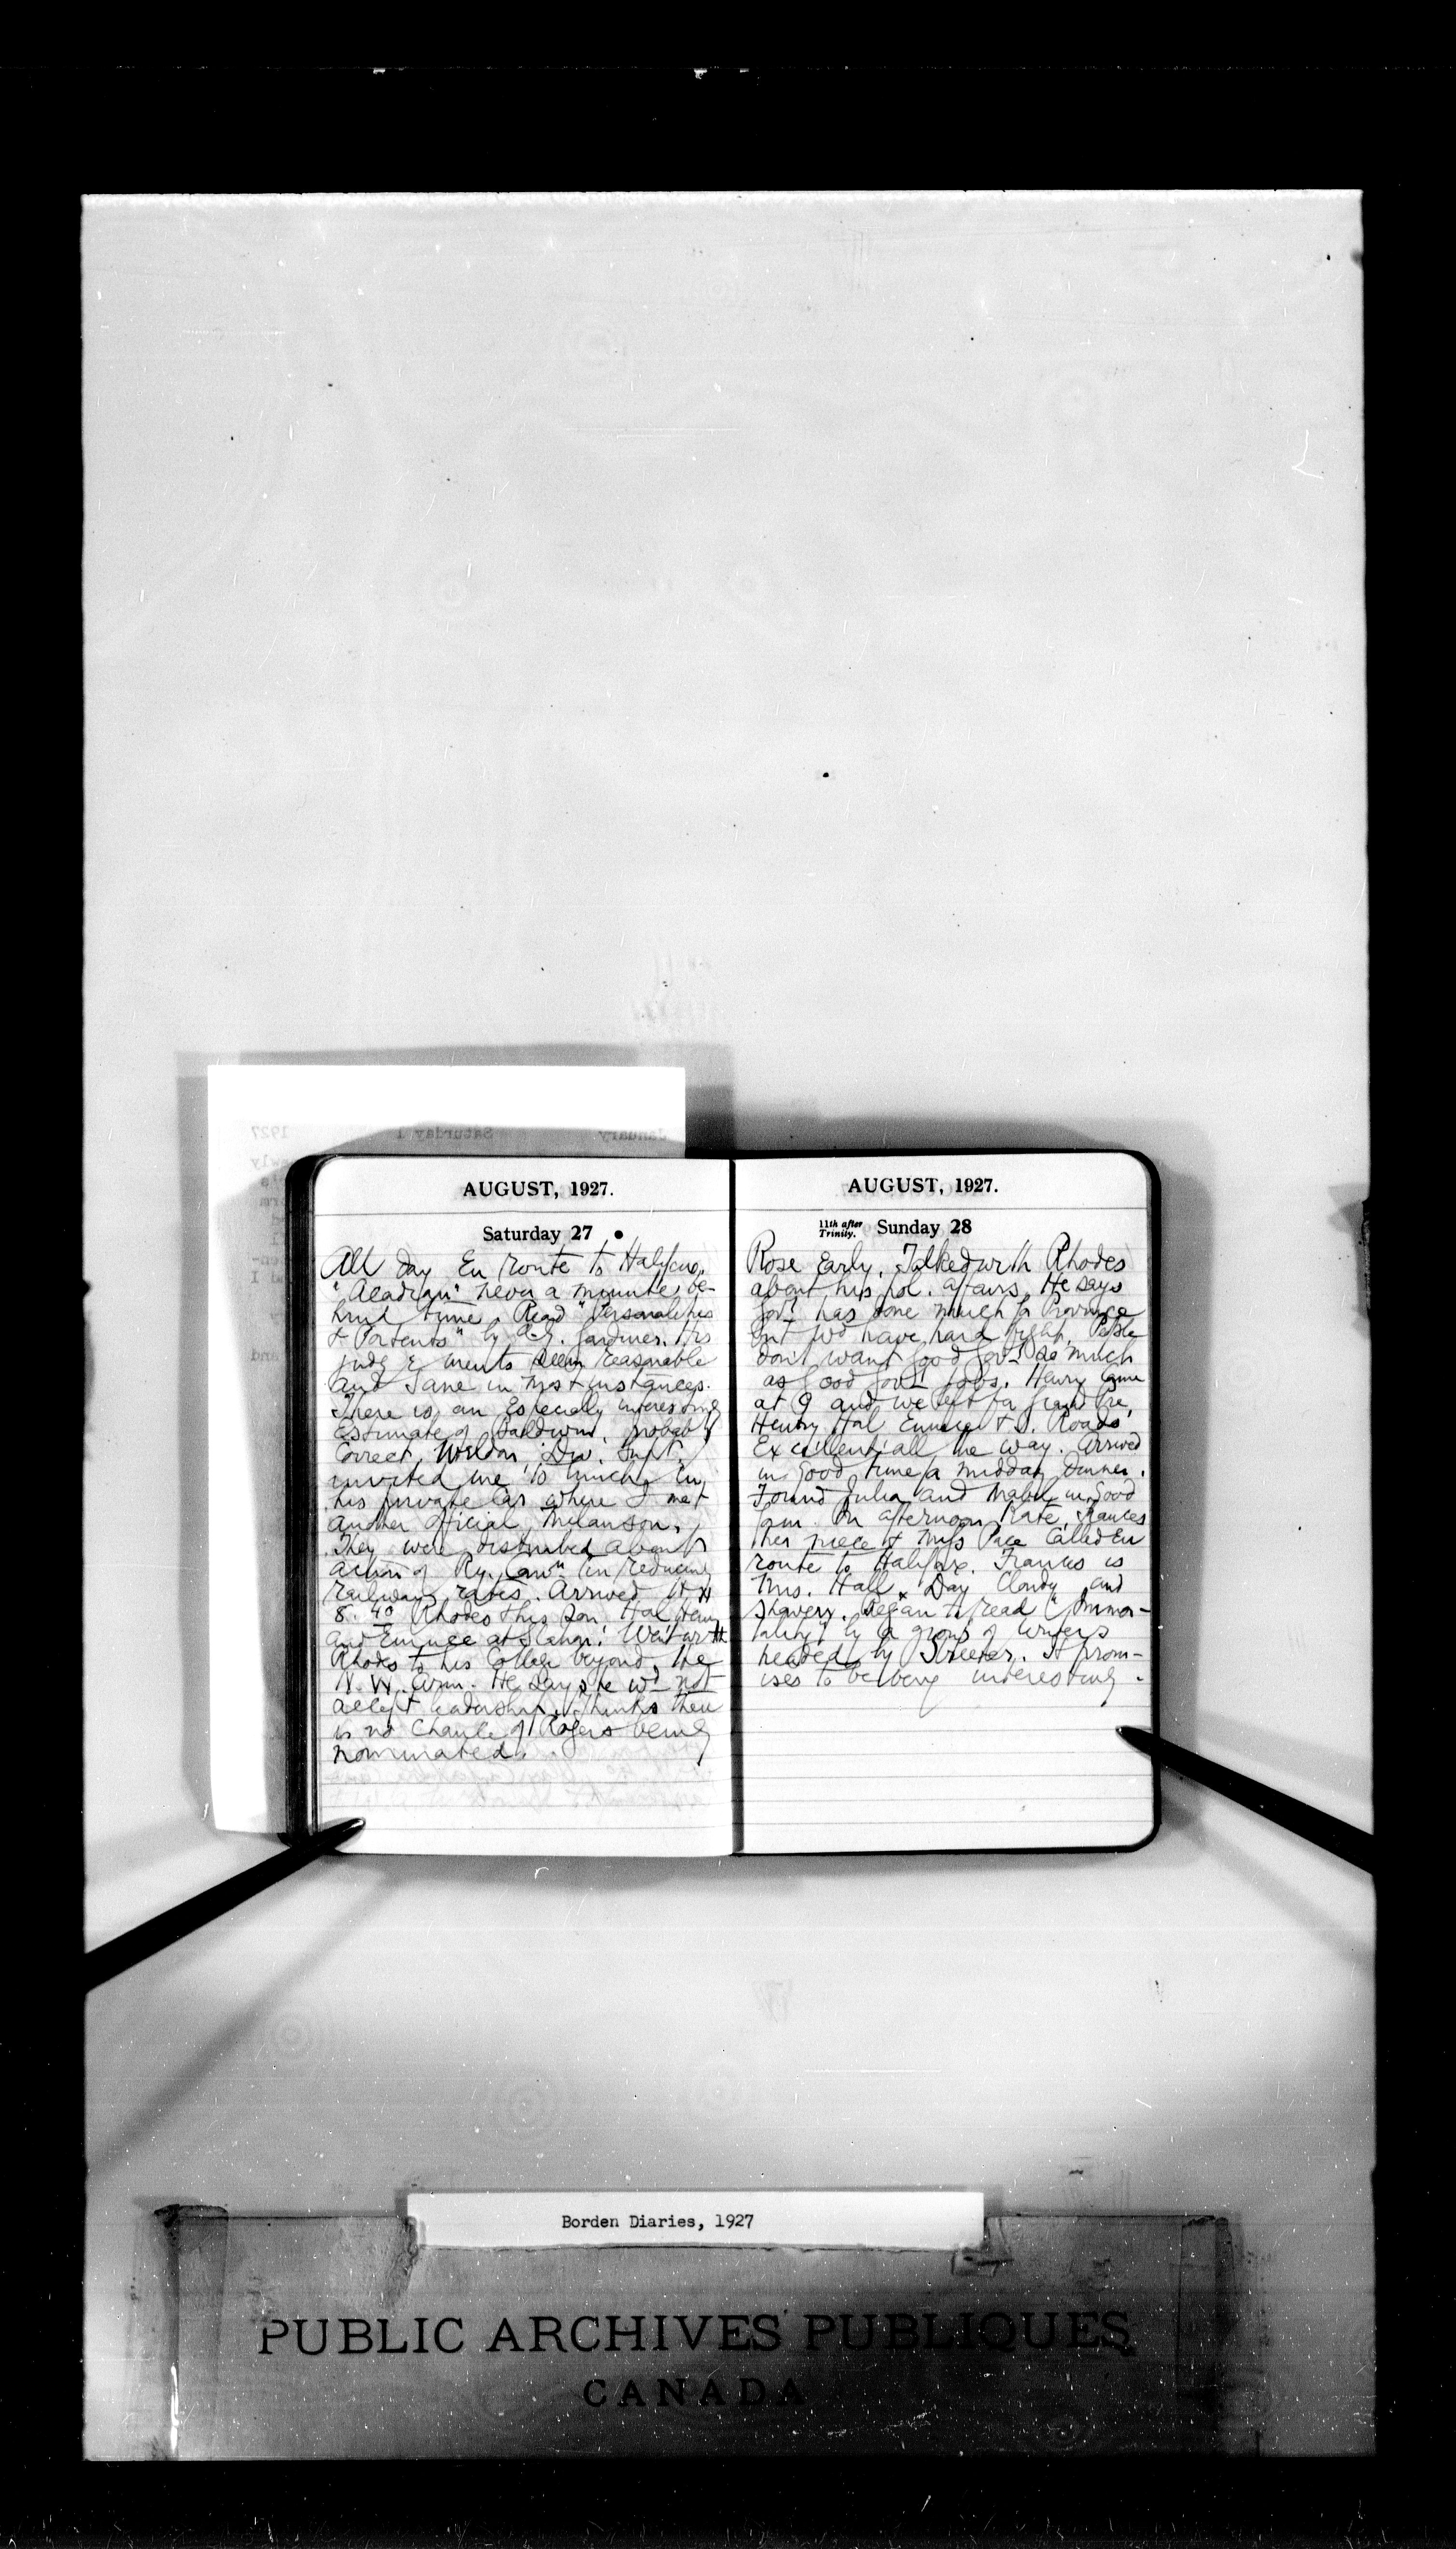 AUGUST, 1927.
Saturday 27
All day En route to Halifax.
"Acadian" never a minute be-
hind time. Read "Personalities
& Portents" by A.G. Gardiner. His
judgements seem reasonable
and sane in most instances.
There is an especially interesting
estimate of Baldwin, probably
correct. Weldon, Div. Supt.
invited me to lunch in
his private car where I met
another official, Melanson.
They were disturbed about
action of Ry. Comn in reducing
railway rates. Arrived at Hx
8.40 Rhodes & his son Hal Henry
and Eunice at Station. Went with
Rhodes to his Cottage beyond the
N.W. Arm. He says he wd not
accept leadership. Thinks there
is no chance of Rogers being
nominated.
AUGUST, 1927.
11th after Trinity. Sunday 28
Rose Early. Talked with Rhodes
about his pol. affairs. He says
Govt has done much for Province
but wd have hard fight. People
don't want good Govt so much
as good Govt jobs. Henry came
at 9 and we left for Grand Pre,
Henry Hal Eunice & I. Roads
Excellent all the way. Arrived
in good time for midday dinner.
Found Julia and Mabel in good
form. In afternoon Kate, Frances
her niece & Mrs Pace called En
route to Halifax. Frances is
Mrs. Hall. Day Cloudy and
showery. Began to read "Immor-
tality" by a group of writers
headed by Streeter. It prom-
ises to be very interesting.
Borden Diaries, 1927
PUBLIC ARCHIVES PUBLIQUES
CANADA